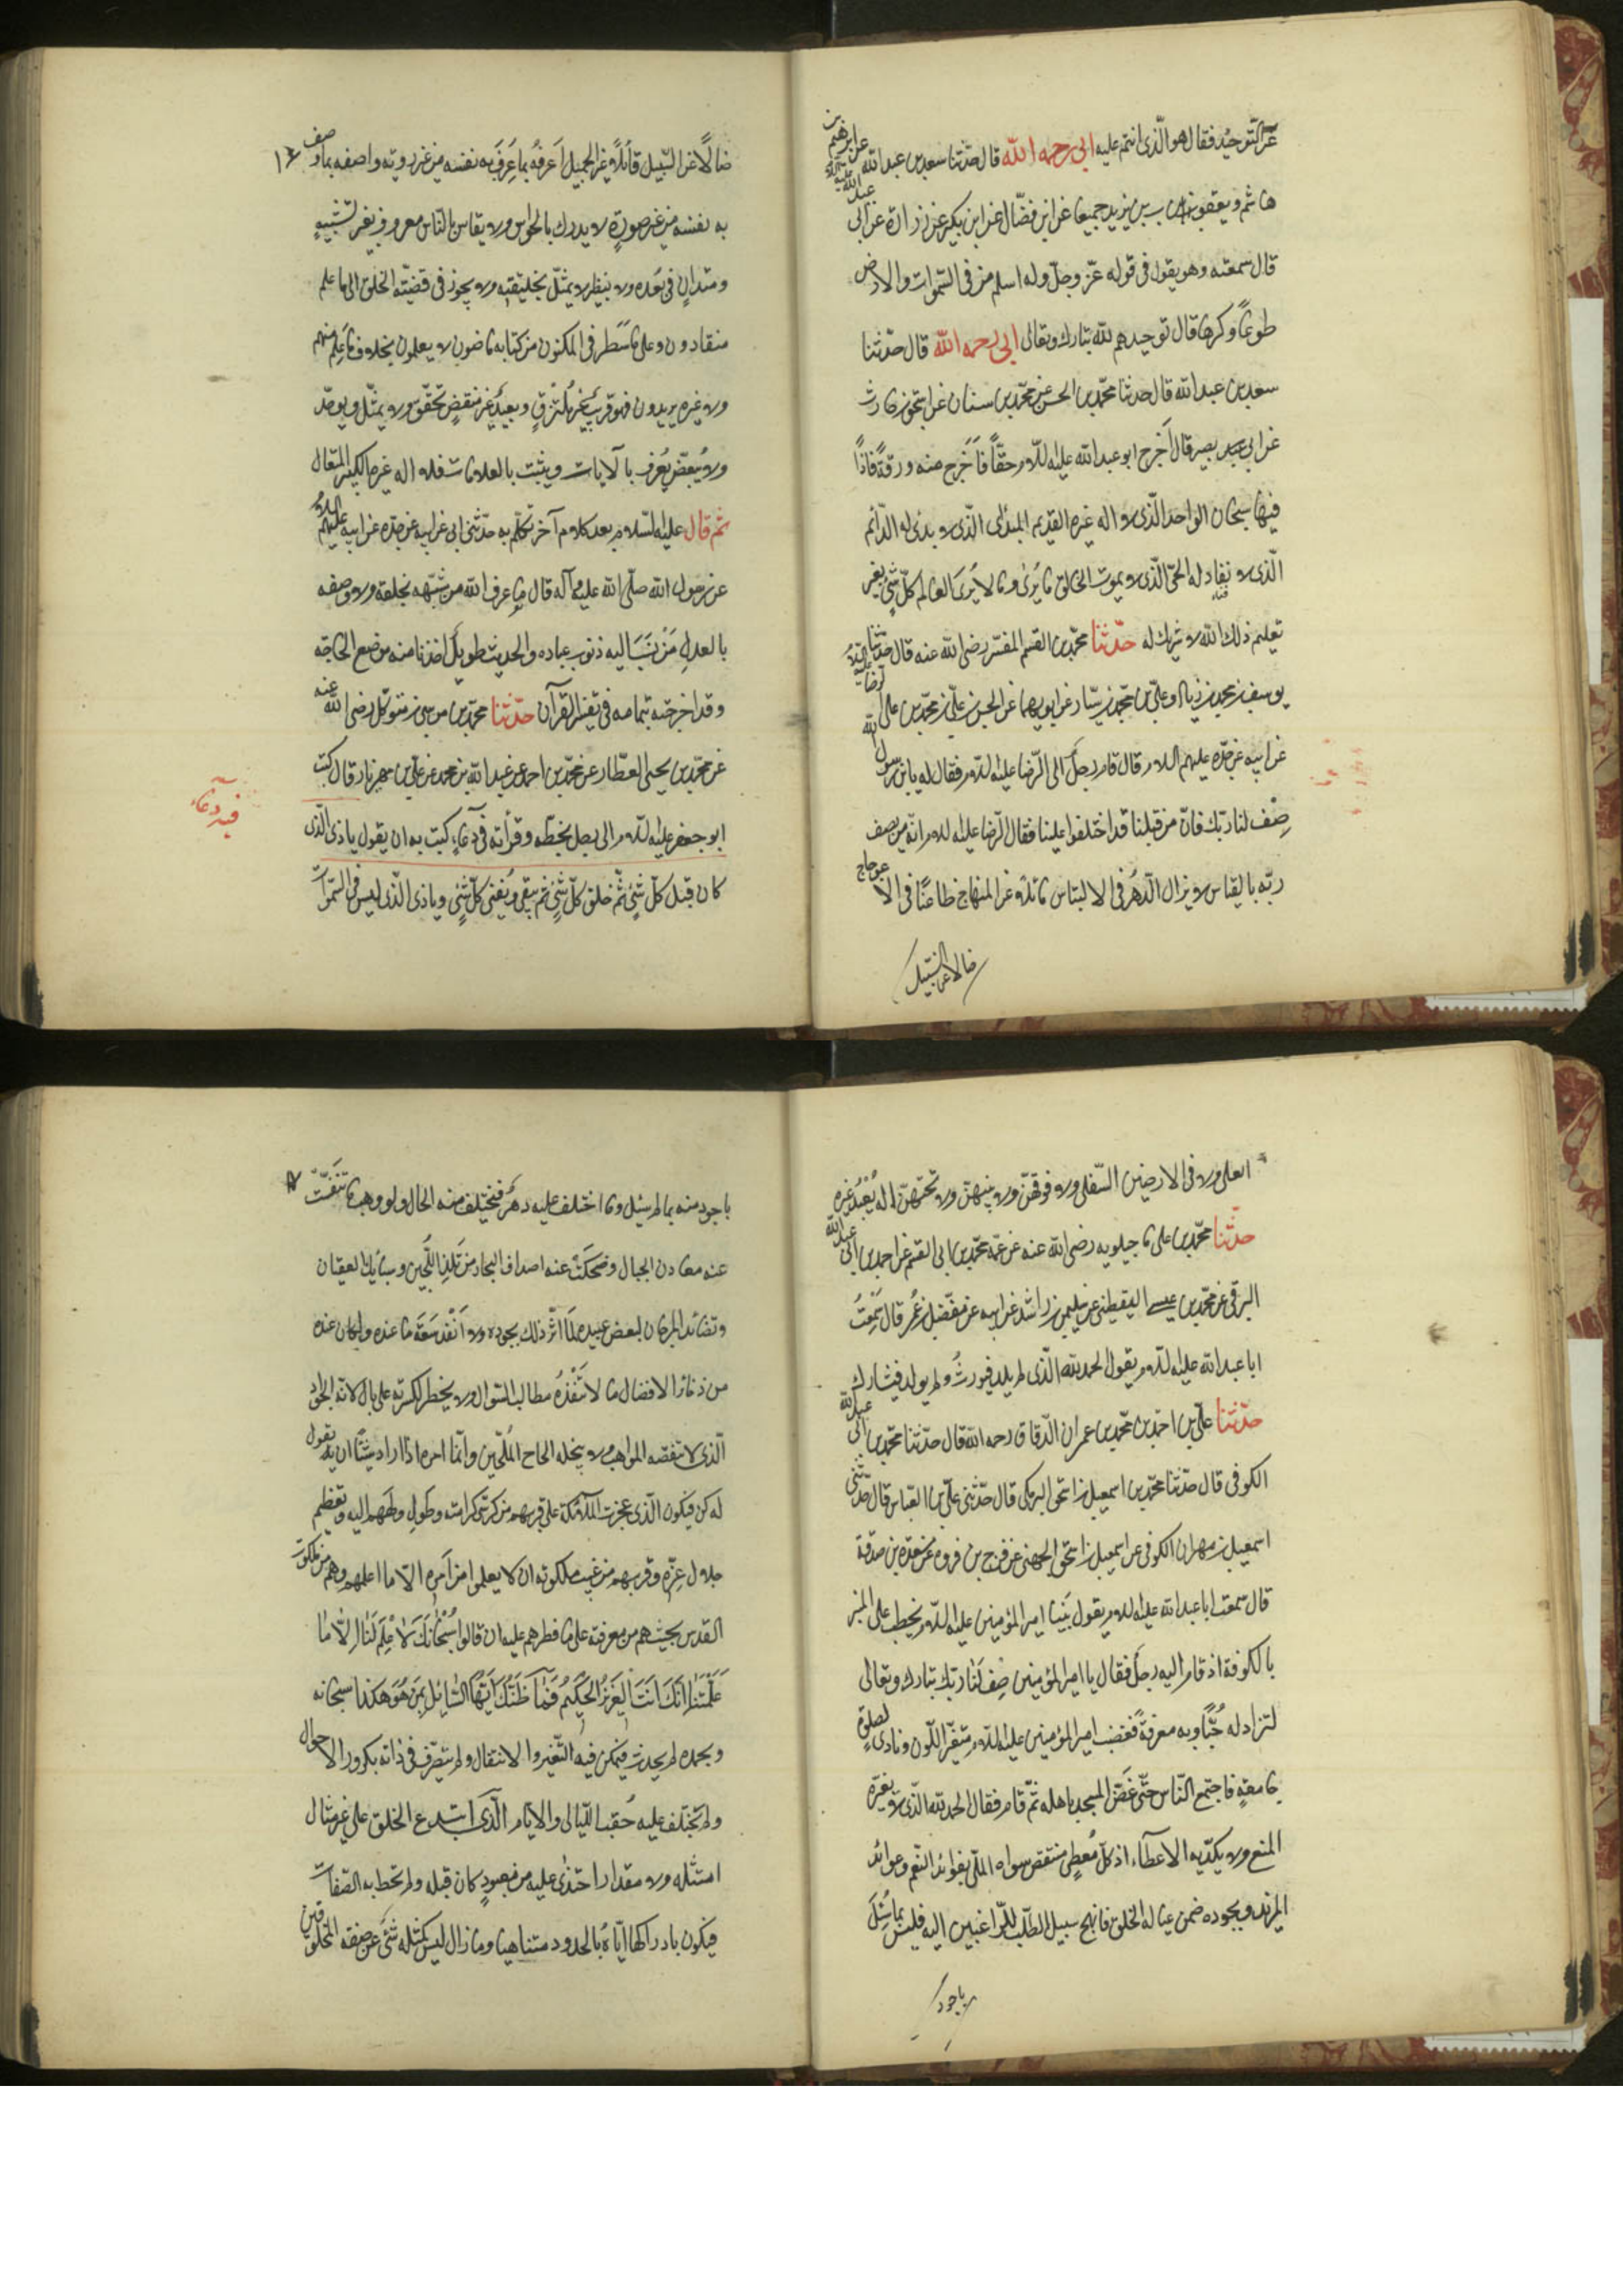 عن التوحيد فقال هو الذي انتم عليه ابي رحمه الله قال حدثنا سعد بن عبد الله عن ابرهيم بن
هاشم و يعقوب بن يزيد جميعا عن ابن فضال عن ابن بكير عن زرارة عن ابي عبد الله عليه السلام
قال سمعته وهو يقول في قوله عز وجل وله اسلم من في السموات والارض
طوعا و كرها قال توحيدهم لله تبارك وتعالى ابي رحمه الله قال حدثنا
سعد بن عبد الله قال حدثنا محمد بن الحسين عن محمد بن سنان عن اسحق بن حارث
عن ابي بصير قال اخرج ابو عبد الله عليه السلام حقا فاخرج منه ورقة فاذا
فيها سبحان الواحد الذي لا اله غيره القديم المبدئ الذي لا بدئ له الدائم
الذي لا نفاد له الحي الذي لا يموت الخالق ما يرى وما لا يرى العالم كل شئ بغير
تعليم ذلك الله لا شريك له حدثنا محمد بن القسم المفسر رضي الله عنه قال حدثنا
يوسف بن محمد بن زياد و علي بن محمد بن سيار عن ابويهما عن الحسن بن علي بن محمد بن علي الرضا عليه السلام
عن ابيه عن جده عليهم السلام قال قام رجل الى الرضا عليه السلام فقال له يابن رسول الله
صف لنا ربك فان من قبلنا قد اختلفوا علينا فقال الرضا عليه السلام انه من يصف
ربه بالقياس لا يزال الدهر في الالتباس مائلا عن المنهاج ظاعنا في الاعوجاج
ضالا عن السبيل
ضالا عن السبيل قائلا غير الجميل اعرفه بما عرف به نفسه من غير روية واصفه بما وصف
به نفسه من غير صورة لا يدرك بالحواس ولا يقاس بالناس معروف بغير تشبيه
ومتدان في بعده ولا بنظير لا يمثل بخليقته ولا يجوز في قضيته الخلق الى ما علم
منقادون وعلى ما سطر في المكنون من كتابه ماضون لا يعلمون بخلاف ما علم منهم
ولا غيره يريدون فهو قريب غير ملتزق وبعيد غير متقص تحقق ولا يمثل ويوحد
ولا يبعض يعرف بالآيات ويثبت بالعلامات فلا اله غيره الكبير المتعال
ثم قال عليه السلام بعد كلام آخر تكلم به حدثني ابي عن ابيه عن جده عن ابيه عليهم السلام
عن رسول الله صلى الله عليه وآله قال ما عرف الله من شبهه بخلقه ولا وصفه
بالعدل من نسب اليه ذنوب عباده والحديث طويل اخذنا منه موضع الحاجة
وقد اخرجته بتمامه في تفسير القرآن حدثنا محمد بن موسى بن متوكل رضي الله عنه
عن محمد بن يحيى العطار عن محمد بن احمد عن عبد الله بن محمد عن علي بن مهزيار قال كتب
فيه دعاء
ابو جعفر عليه السلام الى رجل بخطه وقرأته في دعاء كتب به ان يقول يا ذي الذي
كان قبل كل شئ ثم خلق كل شئ ثم يبقى ويفنى كل شئ ويا ذي الذي ليس في السموات
العلى ولا في الارضين السفلى ولا فوقهن ولا بينهن ولا تحتهن اله يعبد غيره
حدثنا محمد بن علي ماجيلويه رضي الله عنه عن عمه محمد بن ابي القسم عن احمد بن ابي عبد الله
البرقي عن محمد بن عيسى اليقطيني عن سليمن بن راشد عن ابيه عن مفضل بن عمر قال سمعت
ابا عبد الله عليه السلام يقول الحمد لله الذي لم يلد فيورث ولم يولد فيشارك
حدثنا علي بن احمد بن محمد بن عمران الدقاق رحمه الله قال حدثنا محمد بن ابي عبد الله
الكوفي قال حدثنا محمد بن اسمعيل البرمكي قال حدثني علي بن العباس قال حدثني
اسمعيل بن مهران الكوفي عن اسمعيل بن اسحق الجهني عن فرج بن فروه عن مسعدة بن صدقة
قال سمعت ابا عبد الله عليه السلام يقول بينا امير المؤمنين عليه السلام يخطب على المنبر
بالكوفة اذ قام اليه رجل فقال يا امير المؤمنين صف لنا ربك تبارك وتعالى
لنزداد له حبا وبه معرفة فغضب امير المؤمنين عليه السلام متغير اللون ونادى الصلوة
جامعة فاجتمع الناس حتى غص المسجد باهله ثم قام فقال الحمد لله الذي لا يفره
المنع ولا يكديه الاعطاء اذ كل معطي منتقص سواه الملي بفوائد النعم وعوائد
المزيد وبجوده ضمن عيالة الخلق فانهج سبيل الطلب للراغبين اليه فليس بما سئل
باجود
باجود منه بما لم يسئل وما اختلف عليه دهر فيختلف منه الحال ولو وهب ما تنفست
عنه معادن الجبال وضحكت عنه اصداف البحار من فلذ اللجين وسبائك العقيان
ونضائد المرجان لبعض عبيده لما اثر ذلك بجوده ولا انفد سعة ما عنده ولكان عنده
من ذخائر الافضال ما لا تنفده مطالب السؤال ولا يخطر لكثرته على بال لانه الجواد
الذي لا تنقصه المواهب ولا يبخله الحاح الملحين وانما امره اذا اراد شيئا ان يقول
له كن فيكون الذي عجزت الملائكة على قربهم من كرسي كرامته وطول ولههم اليه وتعظيم
جلال عزه وقربهم من غيب ملكوته ان لا يعلموا من امره الا ما اعلمهم وهم من ملكوت
القدس بحيث هم من معرفته على ما فطرهم عليه ان قالوا سبحانك لا علم لنا الا ما
علمتنا انك انت العزيز الحكيم فما ظنك ايها السائل بمن هو هكذا سبحانه
وبحمده لم يحدث فيمكن فيه التغير والانتقال ولم يتصرف في ذاته بكرور الاحوال
ولم يختلف عليه حقب الليالي والايام الذي ابتدع الخلق على غير مثال
امتثله ولا مقدار احتذى عليه من معبود كان قبله ولم تحط به الصفات
فيكون بادراكها اياه بالحدود متناهيا وما زال ليس كمثله شئ عن صفة المخلوقين